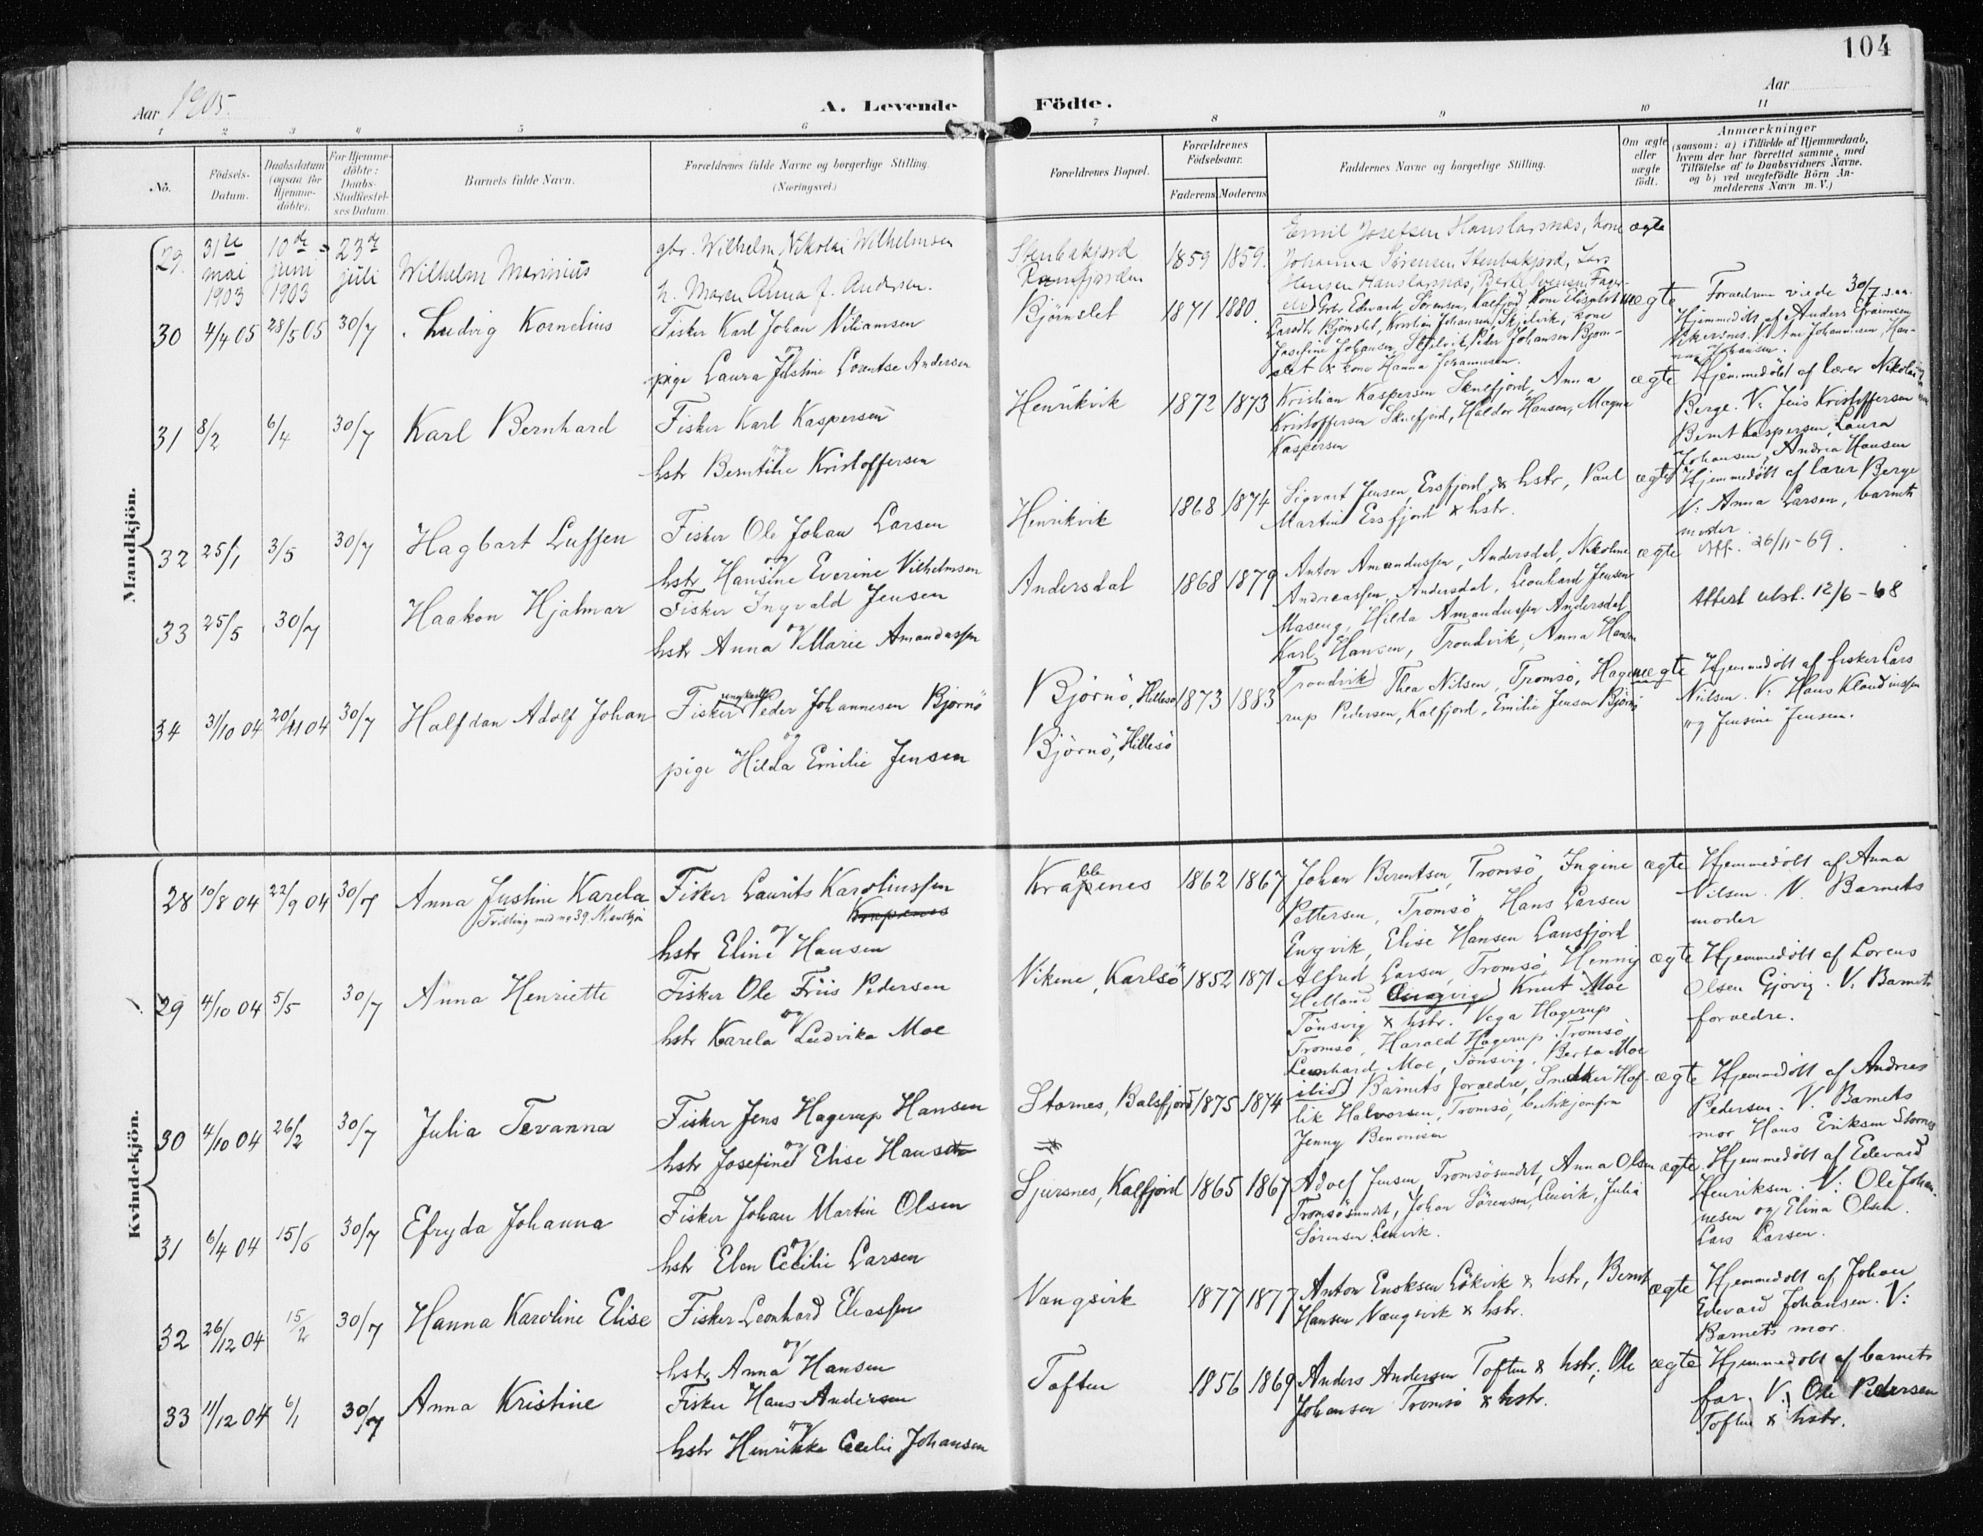 104
Aar 1905.
A. Levende Födte.
Aar
1 2 3 4 5 6 7 8 9 10 11
No.
Födsels-Datum.
Daabsdatum (ogsaa for Hjemme-döbte).
For Hjemme-döbte: Daabs-Stadfæstel-ses Datum.
Barnets fulde Navn.
Forældrenes fulde Navne og borgerlige Stilling.
(Næringsvei.)
Forældrenes Bopæl.
Forældrenes Födselsaar.
Faderens Moderens
Faddernes Navne og borgerlige Stilling.
Om ægte eller uægte födt.
Anmærkninger
(saasom: a) i Tilfælde af Hjemmedaab, hvem der har forrettet samme, med Tilföielse af to Daabsvidners Navne. og b) ved uægtefödte Börn An-melderens Navn m. V.)
Mandkjön.
29. 31te mai 1903 10de juni 1903 = 23de juli Wilhelm Marinius
gbr. Wilhelm Nikolai Wilhelmsen
h. Maren Anna f. Andersen.
Stenbakjord Ramfjorden 1859 1859.
Emil Josefsen Hanslarsnæs, kone
Johanna Sørensen Stenbakjord, Lars
Hansen Hanslarsnæs,
ægte
30 4/4 05 28/5 05 30/7 Ludvig Kornelius
Fisker Karl Johan Viliamsen
og
pige Laura Justine Lorentse Andersen
Björnslet 1871 1880
Gbr. Edvard Sörensen, Kalfjord, kone
Björnslet, Kristian Johansen, Skjelvik, kone
Josefine Johansen, Skjelvik, Peder Johansen Björn-
slet & kone Hanna Johannesen.
uægte
Forældrene viede 30/7 s. aa.
Hjemmedöbt af Anders
V. Johannesen, Han-
na Johansen.
31 8/2 6/4 30/7 Karl Bernhard
Fisker Karl Kaspersen
og
hstr Berntine Kristoffersen
Henrikvik 1872 1873
Kristian Kaspersen Skulfjord, Anna
Kristoffersen Skulfjord, Haldor Hansen, Magna
Kaspersen
ægte
Hjemmedöbt af lærer Nikolai
Berge. V: Jens Kristoffersen
Bernt Kaspersen, Laura
Johansen, Andrea Hansen
32 25/1 3/5 30/7 Hagbart Luffen
Fisker Ole Johan Larsen
og
hstr Hansine Everine Vilhelmsen
Henrikvik 1868 1874
Sigvart Jensen, Ersfjord & hstr, Paul
Martin Ersfjord & hstr.
ægte
Hjemmedöbt af lærer Berge
V: Anna Larsen, barnets
moder
Att. 26/11-69.
33 25/5 30/7 Haakon Hjalmar
Fisker Ingvald Jensen
og
hstr Anna Marie Amandussen
Andersdal 1868 1879
Anton Amandussen, Andersdal, Nikoline
Andreassen, Andersdal, Leonhard Jensen
Maseng, Hilda Amandussen Andersdal
Karl Hansen, Trondvik, Anna Hansen
Trondvik
ægte
Attest utst. 12/6-68
34 31/10 04 20/11 04 30/7 Halfdan Adolf Johan
Fisker ungkarl Peder Johannesen Björnö
og
pige Hilda Emilie Jensen
Björnö, Hillesö 1873 1883
Björnö, Hillesö
Thea Nilsen, Tromsö, Hage-
rup Pedersen, Kalfjord, Emilie Jensen Björnö
uægte
Hjemmedöbt af fisker Lars
Nilsen. V: Hans Klaudiussen
og Jensine Jensen.
Kvindekjön.
28 10/8 04 22/9 04 30/7 Anna Justine Karela
Tvilling med no 39, Mandkjön
Fisker Laurits Karoliussen
Krapenes
og
hstr Eline Hansen
Krabbenes 1862 1867
Johan Berntsen, Tromsö, Ingine
Pettersen, Tromsö, Hans Larsen
Engvik, Elise Hansen Lansfjord
ægte
Hjemmedöbt af Anna
Nilsen. V. Barnets
moder
29 4/10 04 5/5 30/7 Anna Henriette
Fisker Ole Friis Pedersen
og
hstr Karela Ludvika Moe
Vikene, Karlsö 1852 1871
Alfred Larsen, Tromsö, Henning
Helland Knut Moe
Tönsvig & hstr. Vega Hagerup
Tromsö, Harald Hagerup, Tromsö
Leonhard Moe, Tönsvig, Berta Moe
ægte
Hjemmedöbt af Lorens
Olsen Gjövig. V: Barnets
forældre.
30 4/10 04 26/2 30/7 Julia Tevanna
Fisker Jens Hagerup Hansen
og
hstr Josefine Elise Hansen
Stornes, Balsfjord 1875 1874
Barnets forældre, Snedker Hof-
lik Halvorsen, Tromsö, butikjomfru
Jenny Benonisen
ægte
Hjemmedöbt af Andreas
Pedersen. V. Barnets
mor Hans Eriksen Stornes
31 6/4 04 15/6 30/7 Efryda Johanna
Fisker Johan Martin Olsen
og
hstr Elen Cecilie Larsen
Sjursnes, Kalfjord 1865 1867
Adolf Jensen, Tromsösundet, Anna Olsen
Tromsösundet, Johan Sörensen, Lenvik, Julia
Sörensen Lenvik.
ægte
Hjemmedöbt af Edevard
Henriksen. V: Ole Johan-
nesen og Elina Olsen.
Lars Larsen.
32 26/12 04 15/2 30/7 Hanna Karoline Elise
Fisker Leonhard Eliassen
og
hstr Anna Hansen
Vangsvik 1877 1877
Anton Enoksen Lökvik & hstr, Bernt
Hansen Vangsvik & hstr.
ægte
Hjemmedöbt af Johan
Edevard Johansen. V:
Barnets mor.
33 11/12 04 6/1 30/7 Anna Kristine
Fisker Hans Andersen
og
hstr Henrikke Cecilie Johansen
Toften 1856 1869
Anders Andersen Toften & hstr, Ole
Johansen Tromsö & hstr.
ægte
Hjemmedöbt af barnets
far. V. Ole Pedersen
Toften & hstr.